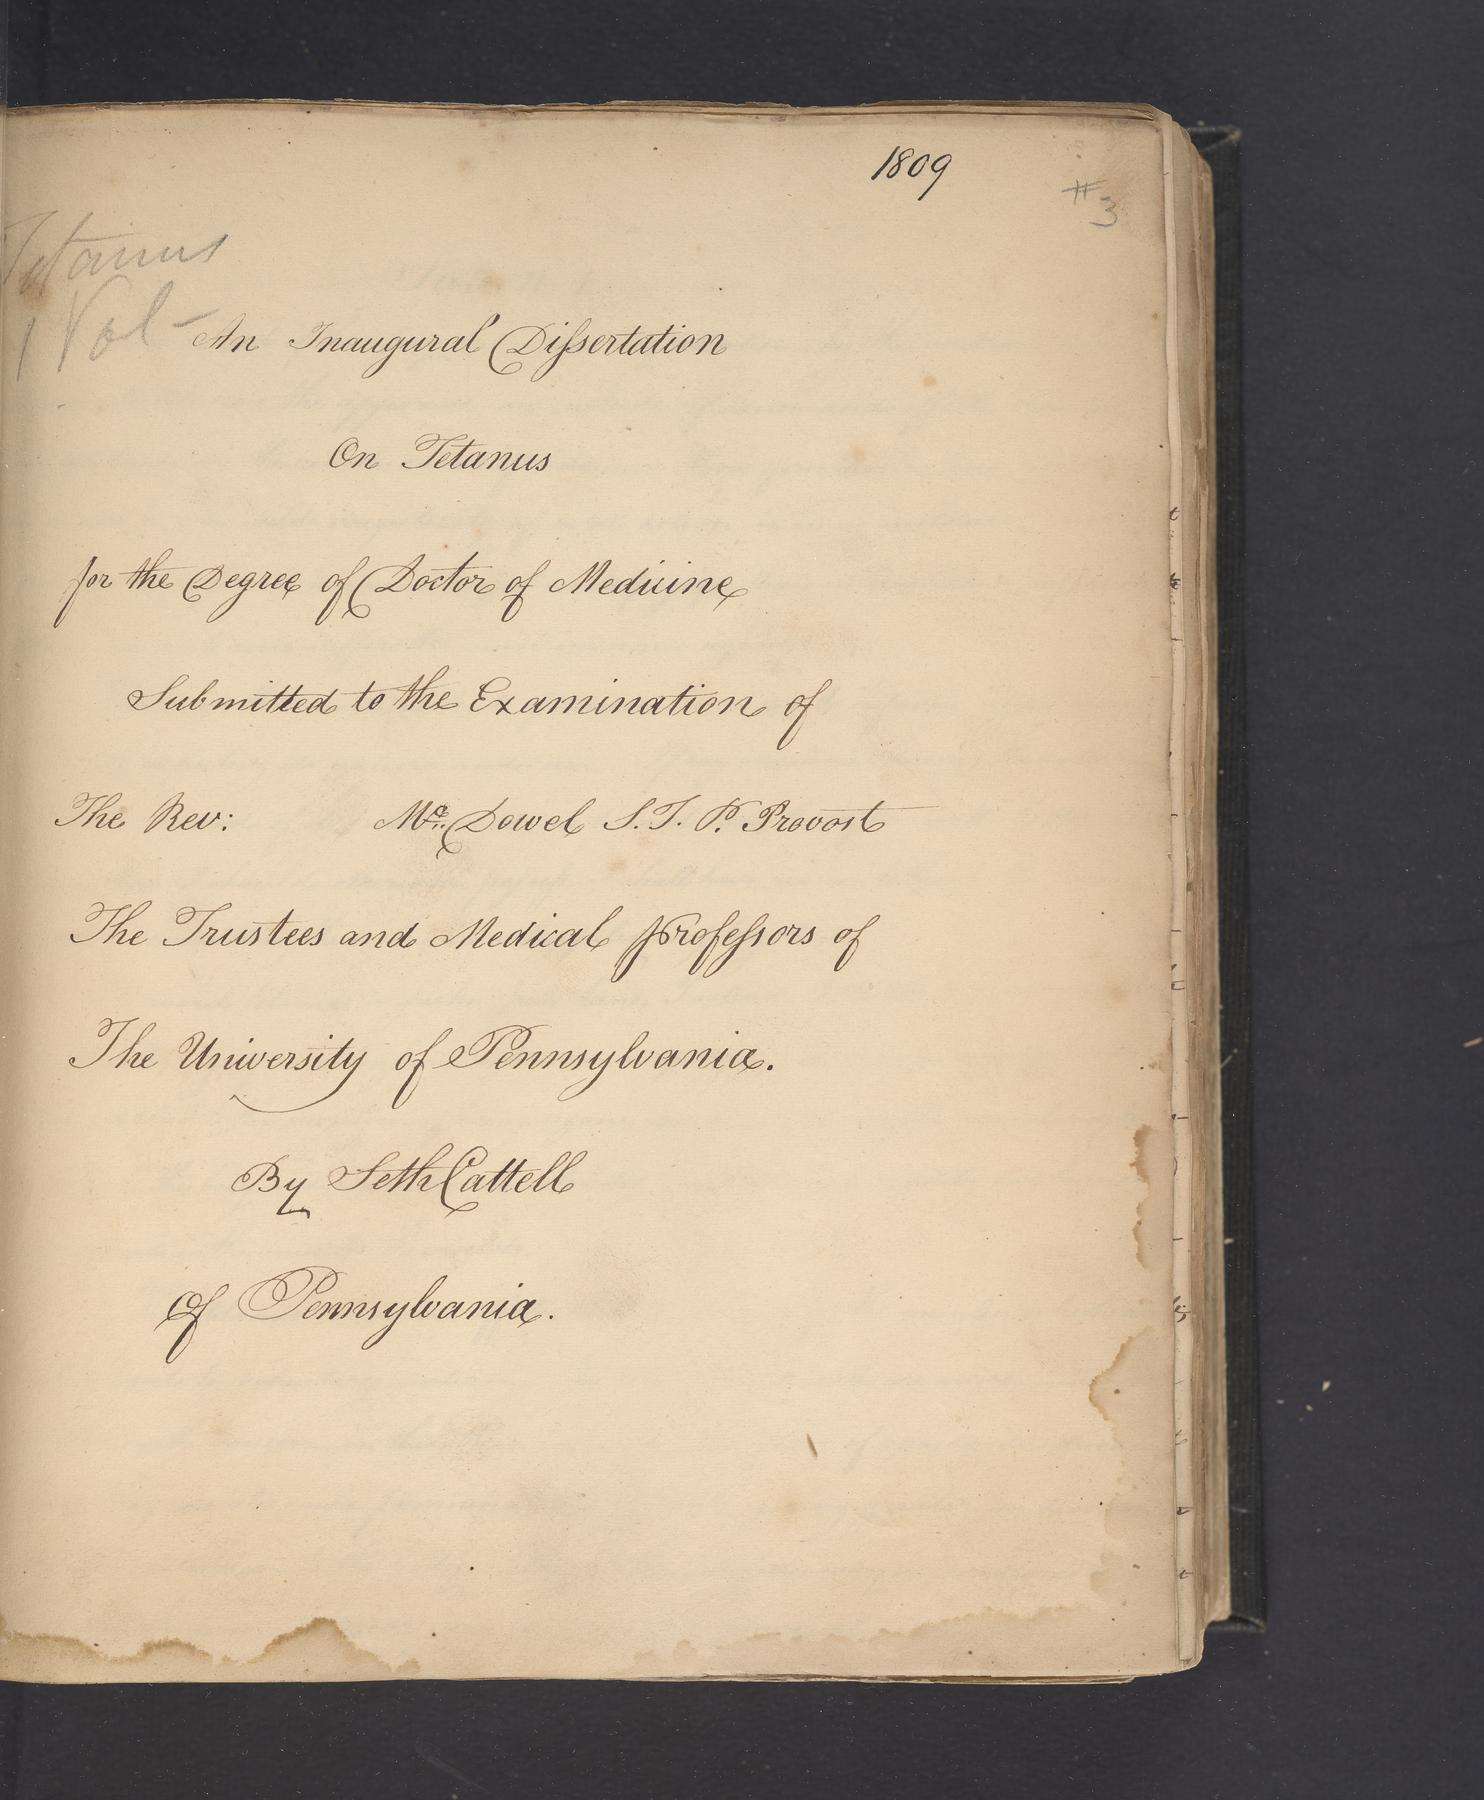 1809
#3
Tetanus
1 Vol-
An Inaugural Dissertation
On Tetanus
for the Degree of Doctor of Medicine
Submitted to the Examination of
The Rev: Mc. Dowel S. T. P. Provost
The Trustees and Medical Professors of
The University of Pennsylvania.
By Seth Cattell
Of Pennsylvania.